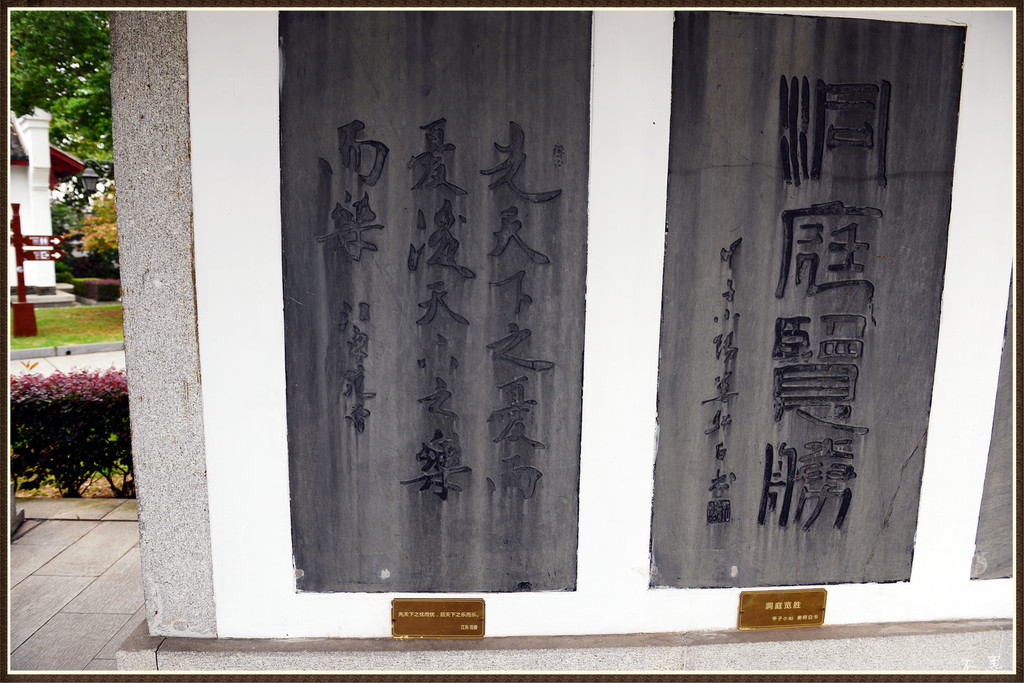 洞庭覽勝
甲子小陽
先天下之憂而
憂後天下之樂
而樂
洞庭览胜
先天下之忧而忧，后天下之乐而乐。